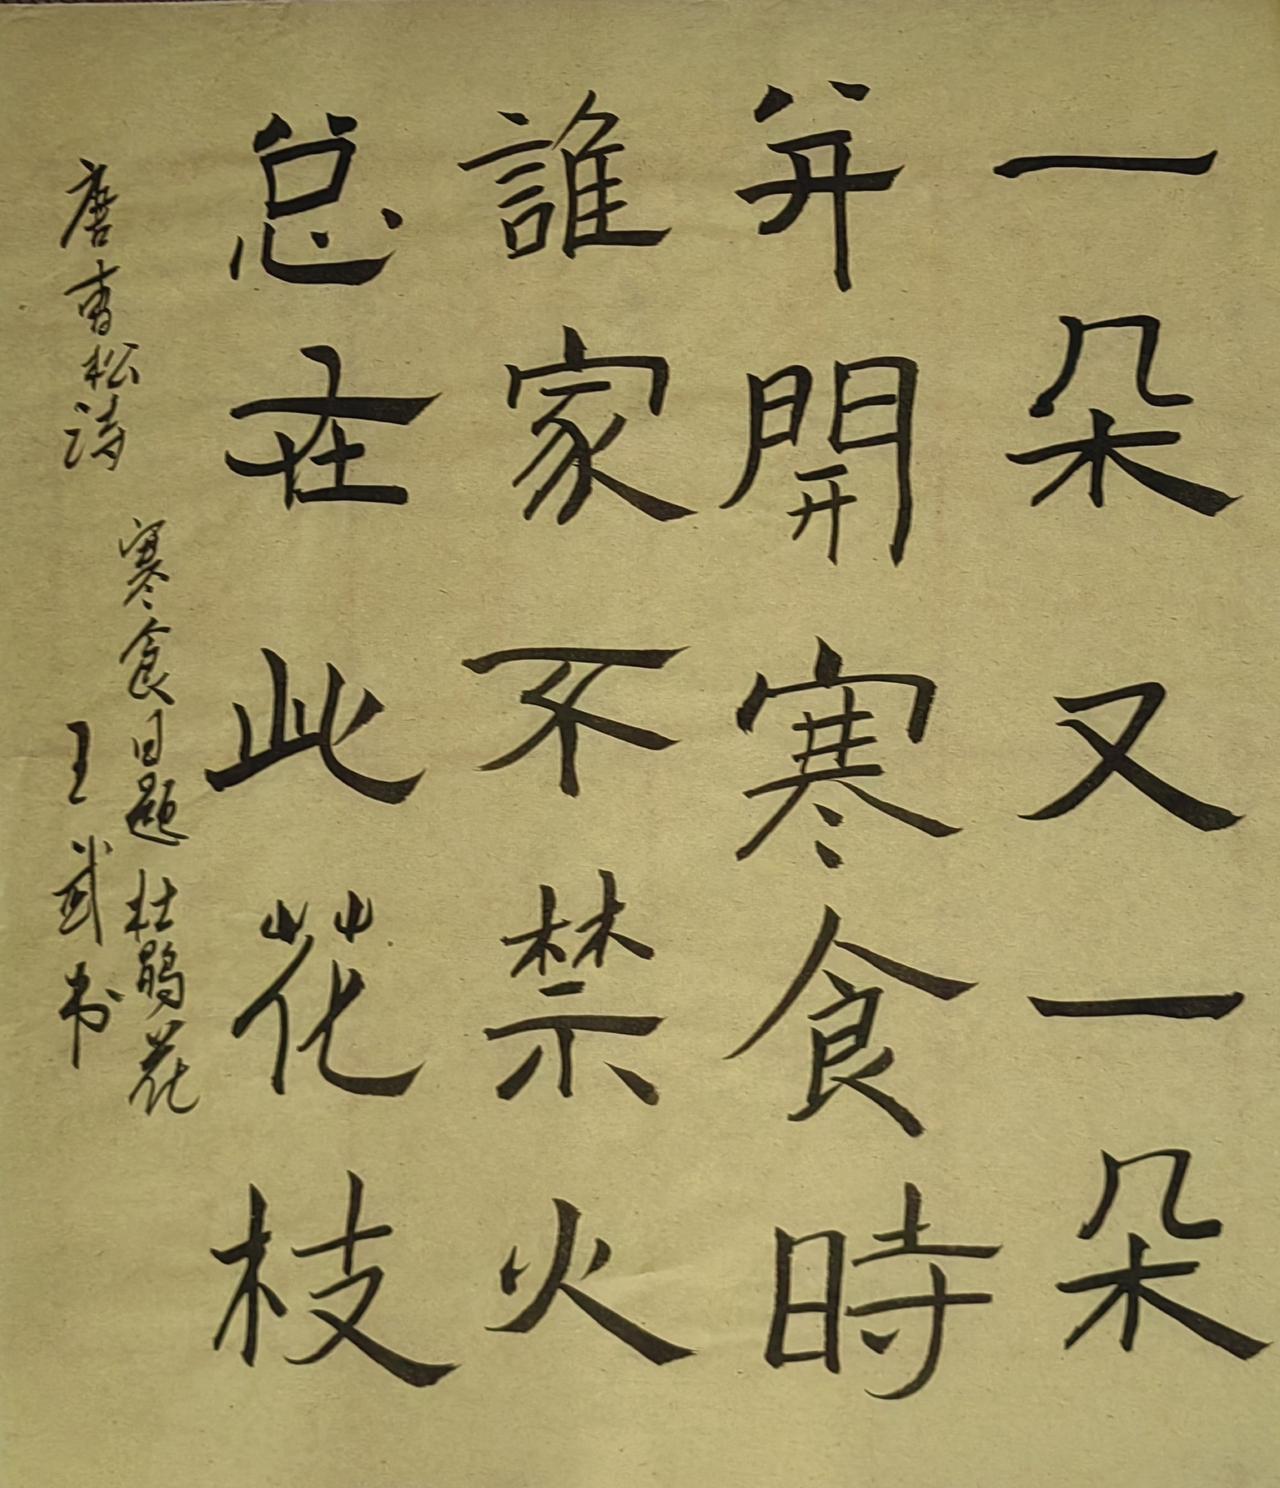 一朵又一朵
并開寒食時
誰家不禁火
总在此花枝
唐曹松诗
寒食日题杜鹃花
王武书